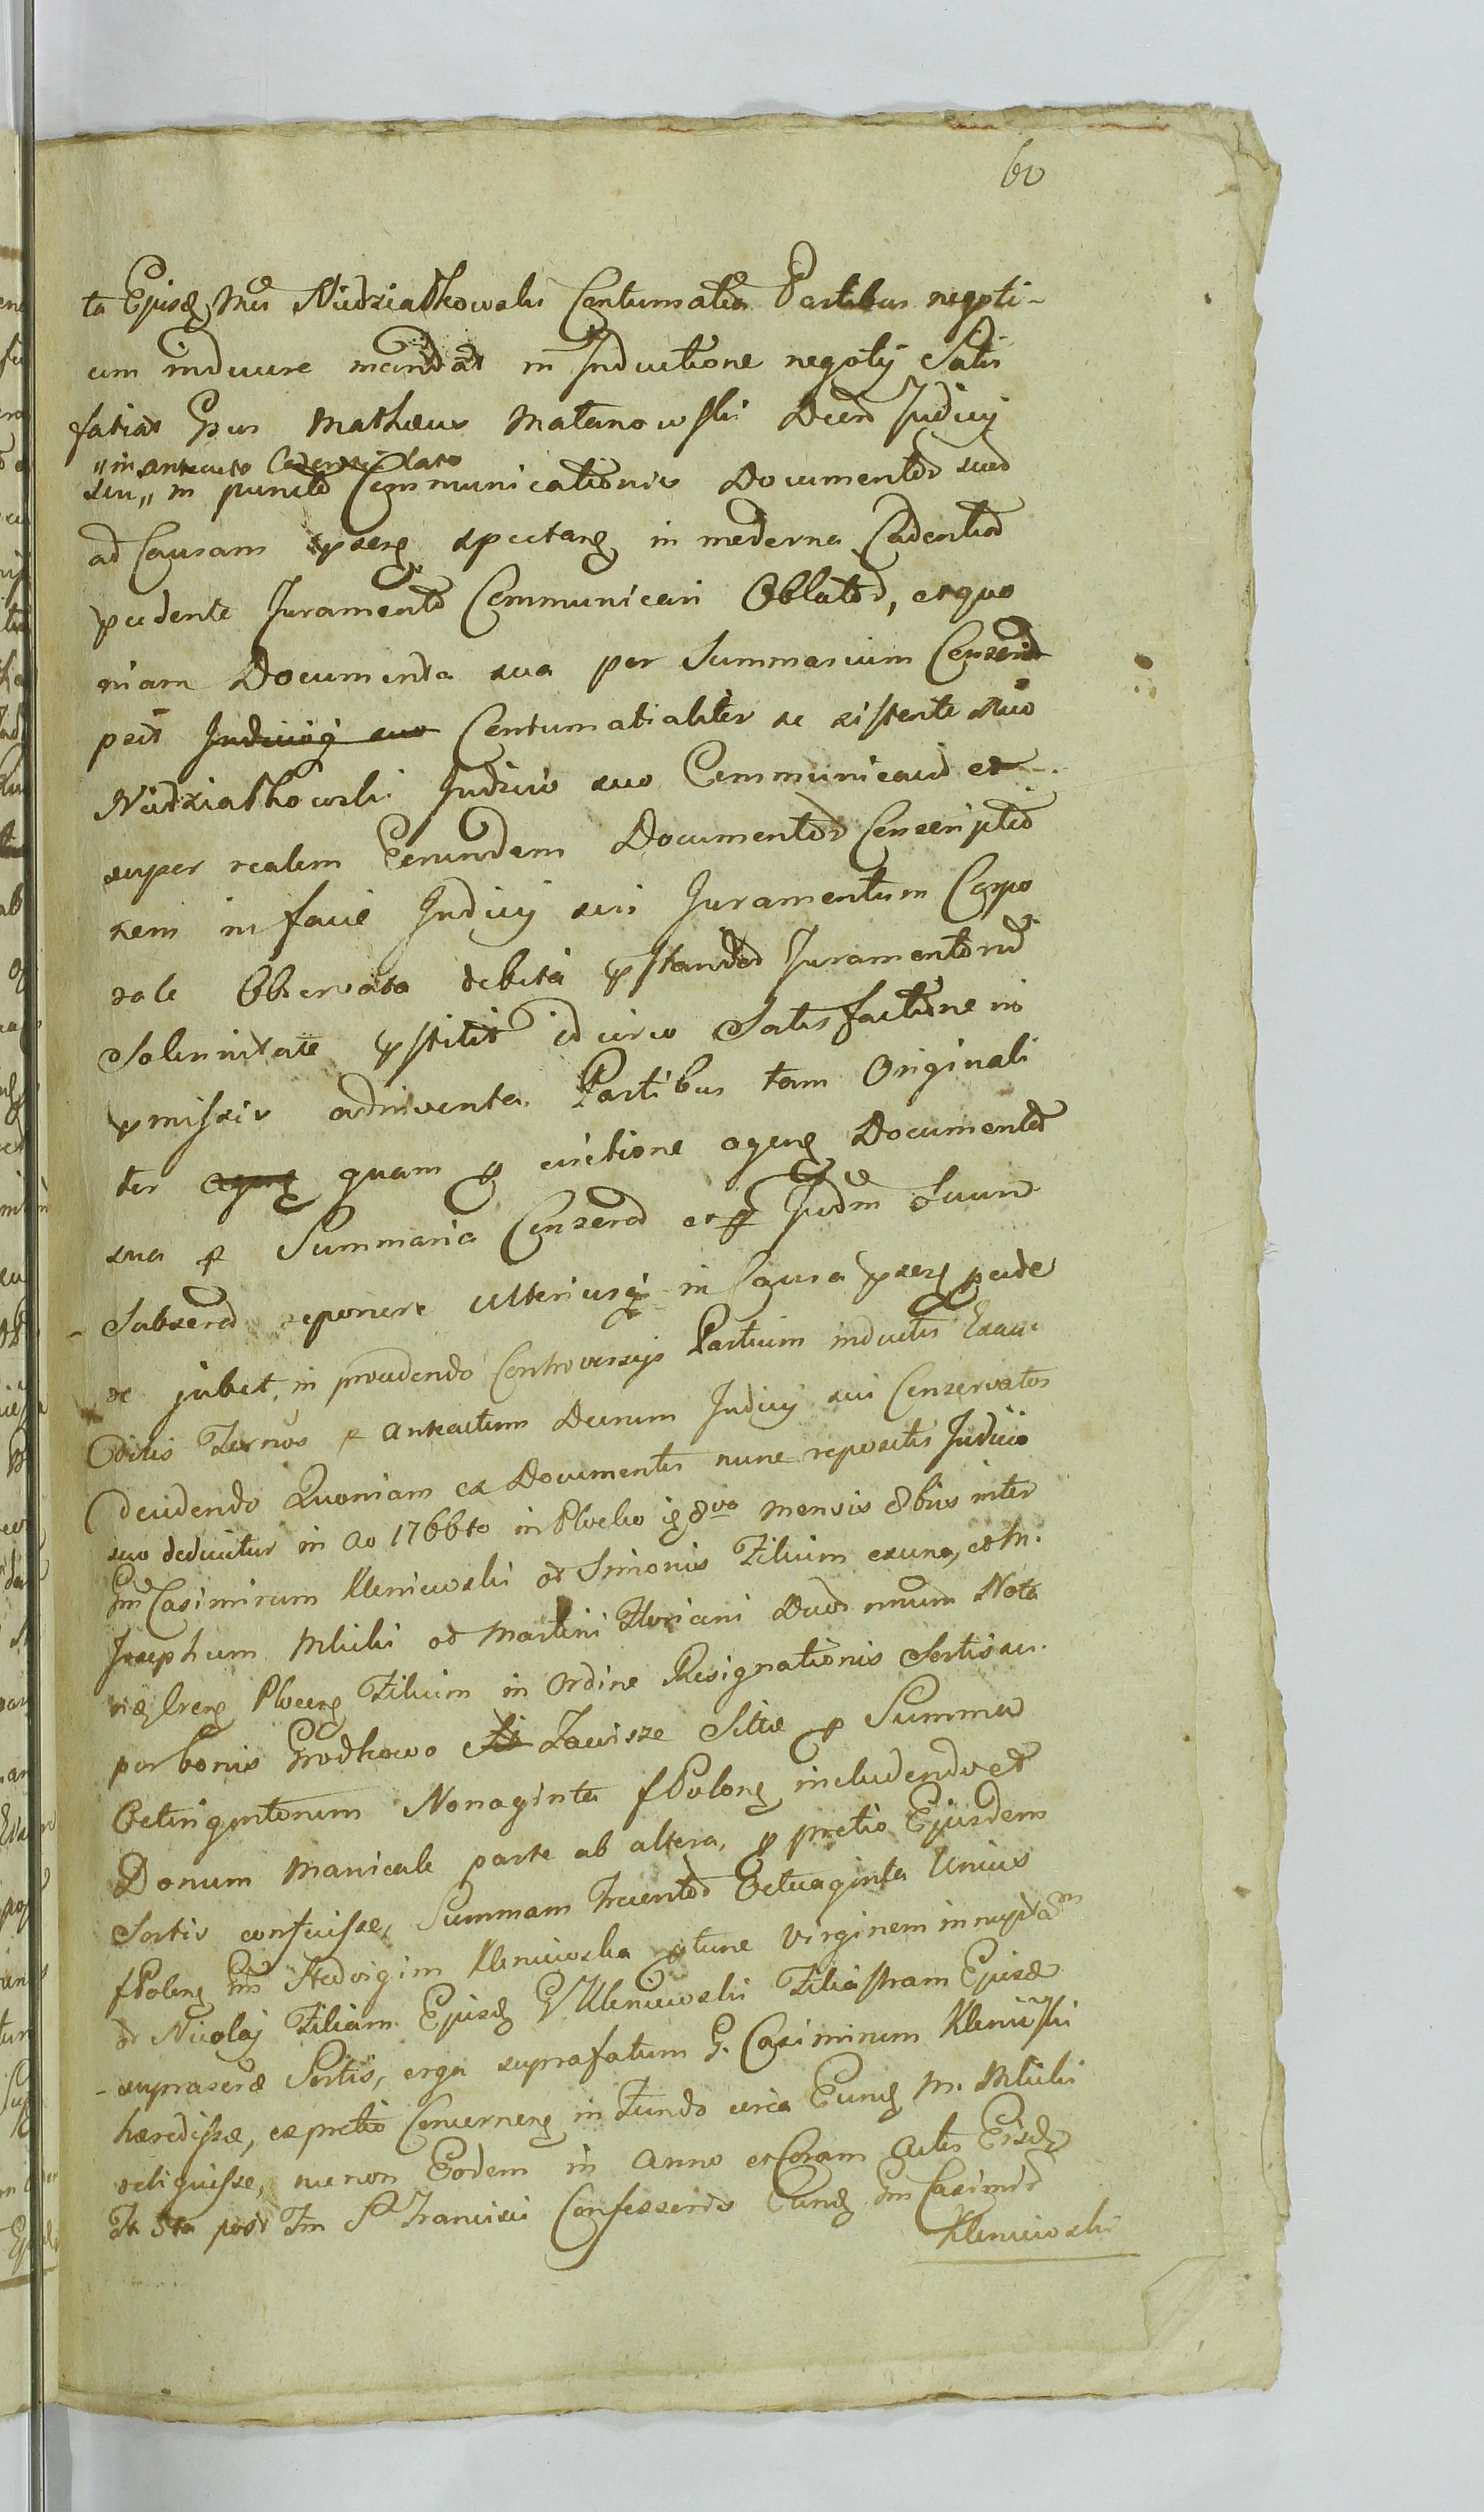 60
ta Ejusd Mci Niedziałkowski Contumatia Partibus negoti-
um inducere mandat in Inductione negotij Satis
faciat Gsus Mathæus Matanowski Decr Judicij
„in antecato lato
sui „ in puncto Communicationis Documentor suor
ad Causam pnsens spectang in moderna Cadentia
pcedente Juramento Communicari Oblator, et quo
niam Documenta sua per Summarium Conscrip
psit Judiciog suo Contumatialiter se sistente Mco
Niedziałkowski Judicio suo Communicavit et
super realem Eorundem Documentor Conscriptio
nem in facie Judicij sui Juramentum Corpo
rale Observata debita pstandor Juramentorum
Solennitate pstitit idcirco Satisfactione in
pmissis adinventa Partibus tam Originali
ter ageng quam p evictione ageng Documenta
sua p Summaria Conserva et p Judm Suum
Subscrib reponere ulteriusq in Causa pnseng pcede
re jubet, in procedendo Controversijs Partium inductis Exau
ditis Turnos p anteactum Decretum Judicij sui Conservatos
decidendo Quoniam ex Documentis nunc repositis Judicio
suo deducitur in Ao 1766to in Płocko ig 8va mensis 8bris inter
Gm Casimirum Kleniewski od Simonis Filium ex una, et M.
Josephum Mlicki od Martini Floriani Duor nnum Nota
riæ Creng Ploceng Filium in Ordine Resignationis Sortis su
per bonis Grodkowo Zawisze Sitæ p Summa
Octingentorum Nonaginta fPolong includendo et
Donum Manicale parte ab altera, p pretio Ejusdem
Sortis confuisse, Summam Trecentor Octuaginta Unius
fPolong Gm Hedvigim Kleniewska ptunc Virginem innuptam
od Nicolaj Filiam Ejusd G Kleniewski Filiastram Ejusd
suprascræ Sortis, erga suprafatum G. Casimirum Kleniewski
hæredisse, ex pretio Concerneng in Fundo circa Eund M. Mlicki
reliquisse, necnon Eodem in Anno et Coram Actis Eisd
Fr 5ta post Fm S Francisci Confessoris Eund Gm Casimir
Kleniewski